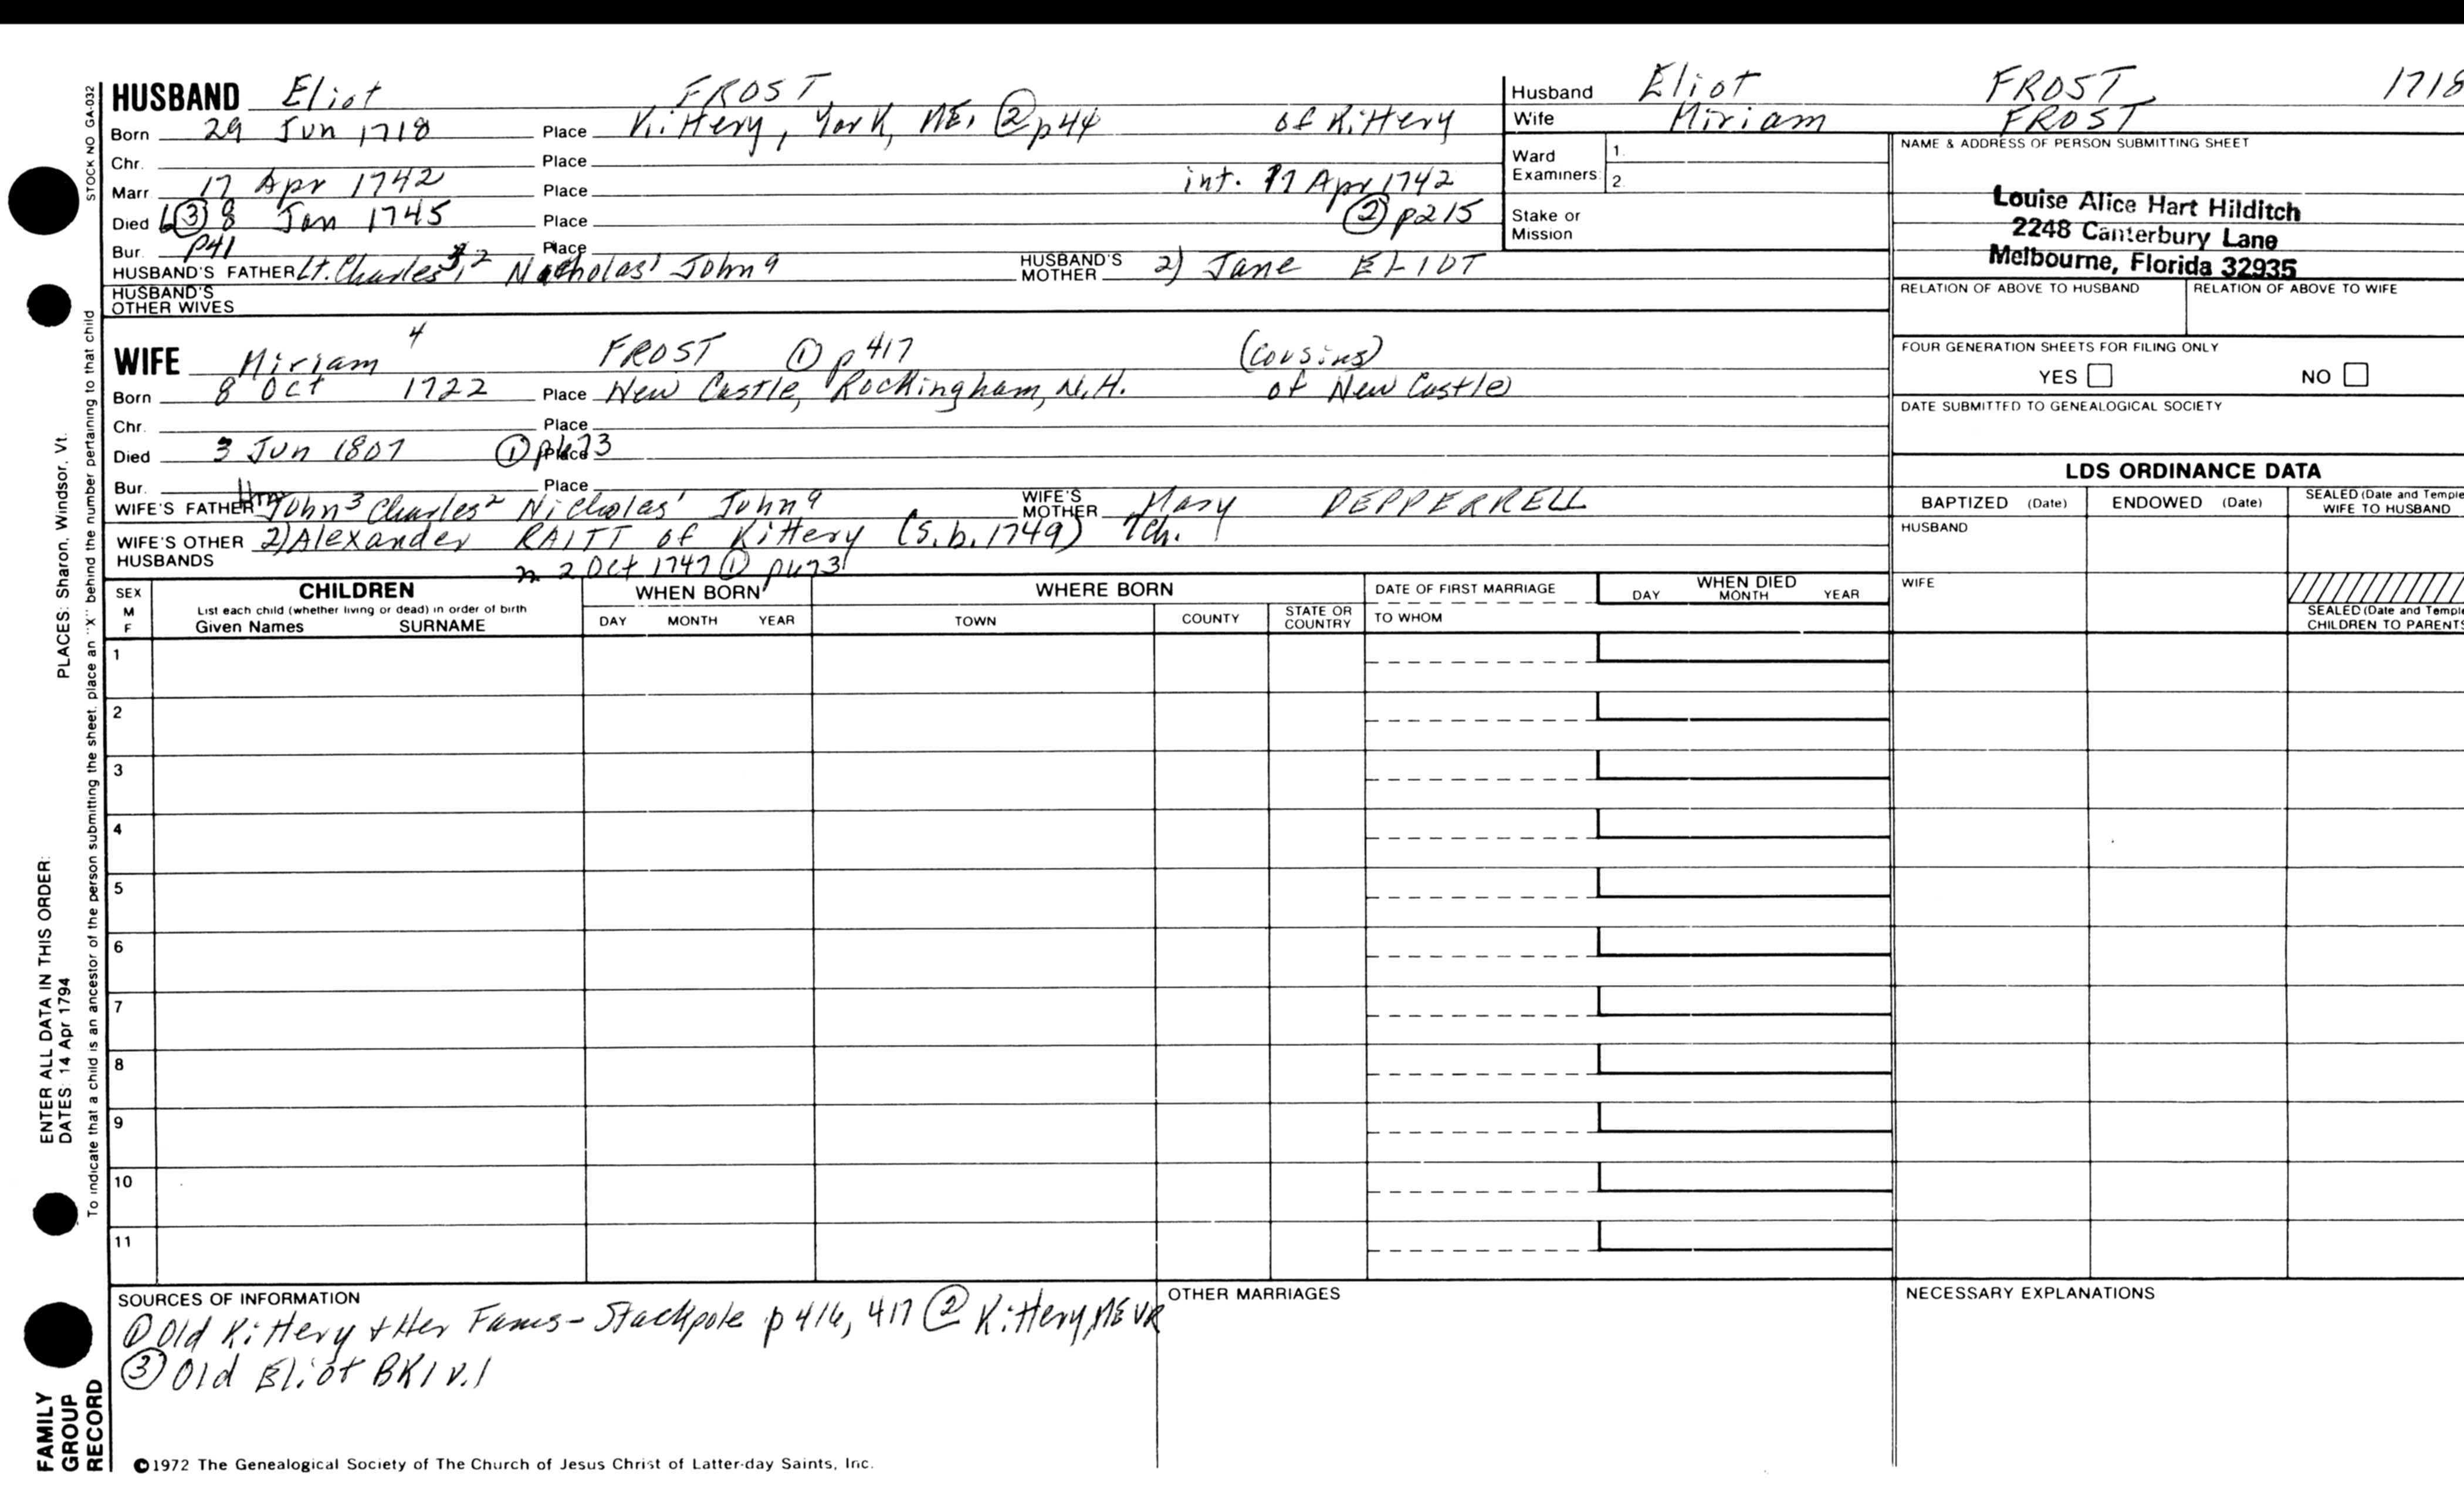 STOCK NO GA-032
HUSBAND Eliot FROST
Born 29 Jun 1718 Place Kittery, York, ME. ② p44 of Kittery
Chr. Place
Marr 17 Apr 1742 Place int. 17 Apr 1742
Died ③ 8 Jan 1745 Place ② p215
Bur. p41 Place
HUSBAND'S FATHER Lt. Charles³,² Nicholas¹ John⁹ HUSBAND'S MOTHER 2) Jane ELIOT
HUSBAND'S OTHER WIVES
WIFE Miriam⁴ FROST ① p417 (cousins)
Born 8 Oct 1722 Place New Castle, Rockingham, N.H. of New Castle
Chr. Place
Died 3 Jun 1807 ① p673 Place
Bur. Place
WIFE'S FATHER Hon John³ Charles² Nicholas¹ John⁹ WIFE'S MOTHER Mary PEPPERRELL
WIFE'S OTHER HUSBANDS 2) Alexander RAITT of Kittery (S.b. 1749) 7ch.
m 2 Oct 1747 ① p673
Husband Eliot FROST 1718
Wife Miriam FROST
Ward Examiners 1.
2.
Stake or Mission
NAME & ADDRESS OF PERSON SUBMITTING SHEET
Louise Alice Hart Hilditch
2248 Canterbury Lane
Melbourne, Florida 32935
RELATION OF ABOVE TO HUSBAND RELATION OF ABOVE TO WIFE
FOUR GENERATION SHEETS FOR FILING ONLY
YES NO
DATE SUBMITTED TO GENEALOGICAL SOCIETY
LDS ORDINANCE DATA
BAPTIZED (Date) ENDOWED (Date) SEALED (Date and Temple
WIFE TO HUSBAND
HUSBAND
WIFE
SEALED (Date and Temple
CHILDREN TO PARENTS
SEX
M
F
CHILDREN
List each child (whether living or dead) in order of birth
Given Names SURNAME
WHEN BORN
DAY MONTH YEAR
WHERE BORN
TOWN COUNTY STATE OR COUNTRY
DATE OF FIRST MARRIAGE
TO WHOM
WHEN DIED
DAY MONTH YEAR
1
2
3
4
5
6
7
8
9
10
11
SOURCES OF INFORMATION
① Old Kittery & Her Fams - Stackpole p 416, 417 ② Kittery, ME VR
③ Old Eliot BK1 v.1
OTHER MARRIAGES
NECESSARY EXPLANATIONS
©1972 The Genealogical Society of The Church of Jesus Christ of Latter-day Saints, Inc.
FAMILY
GROUP
RECORD
ENTER ALL DATA IN THIS ORDER:
DATES: 14 Apr 1794
PLACES: Sharon, Windsor, Vt.
To indicate that a child is an ancestor of the person submitting the sheet, place an "X" behind the number pertaining to that child